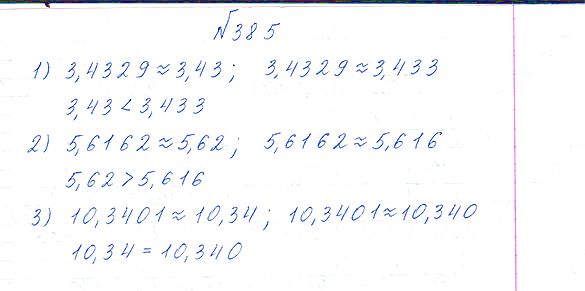 №385
1) 3,4329≈3,43; 3,4329≈3,433
3,43<3,433
2) 5,6162≈5,62; 5,6162≈5,616
5,62>5,616
3) 10,3401≈10,34; 10,3401≈10,340
10,34=10,340